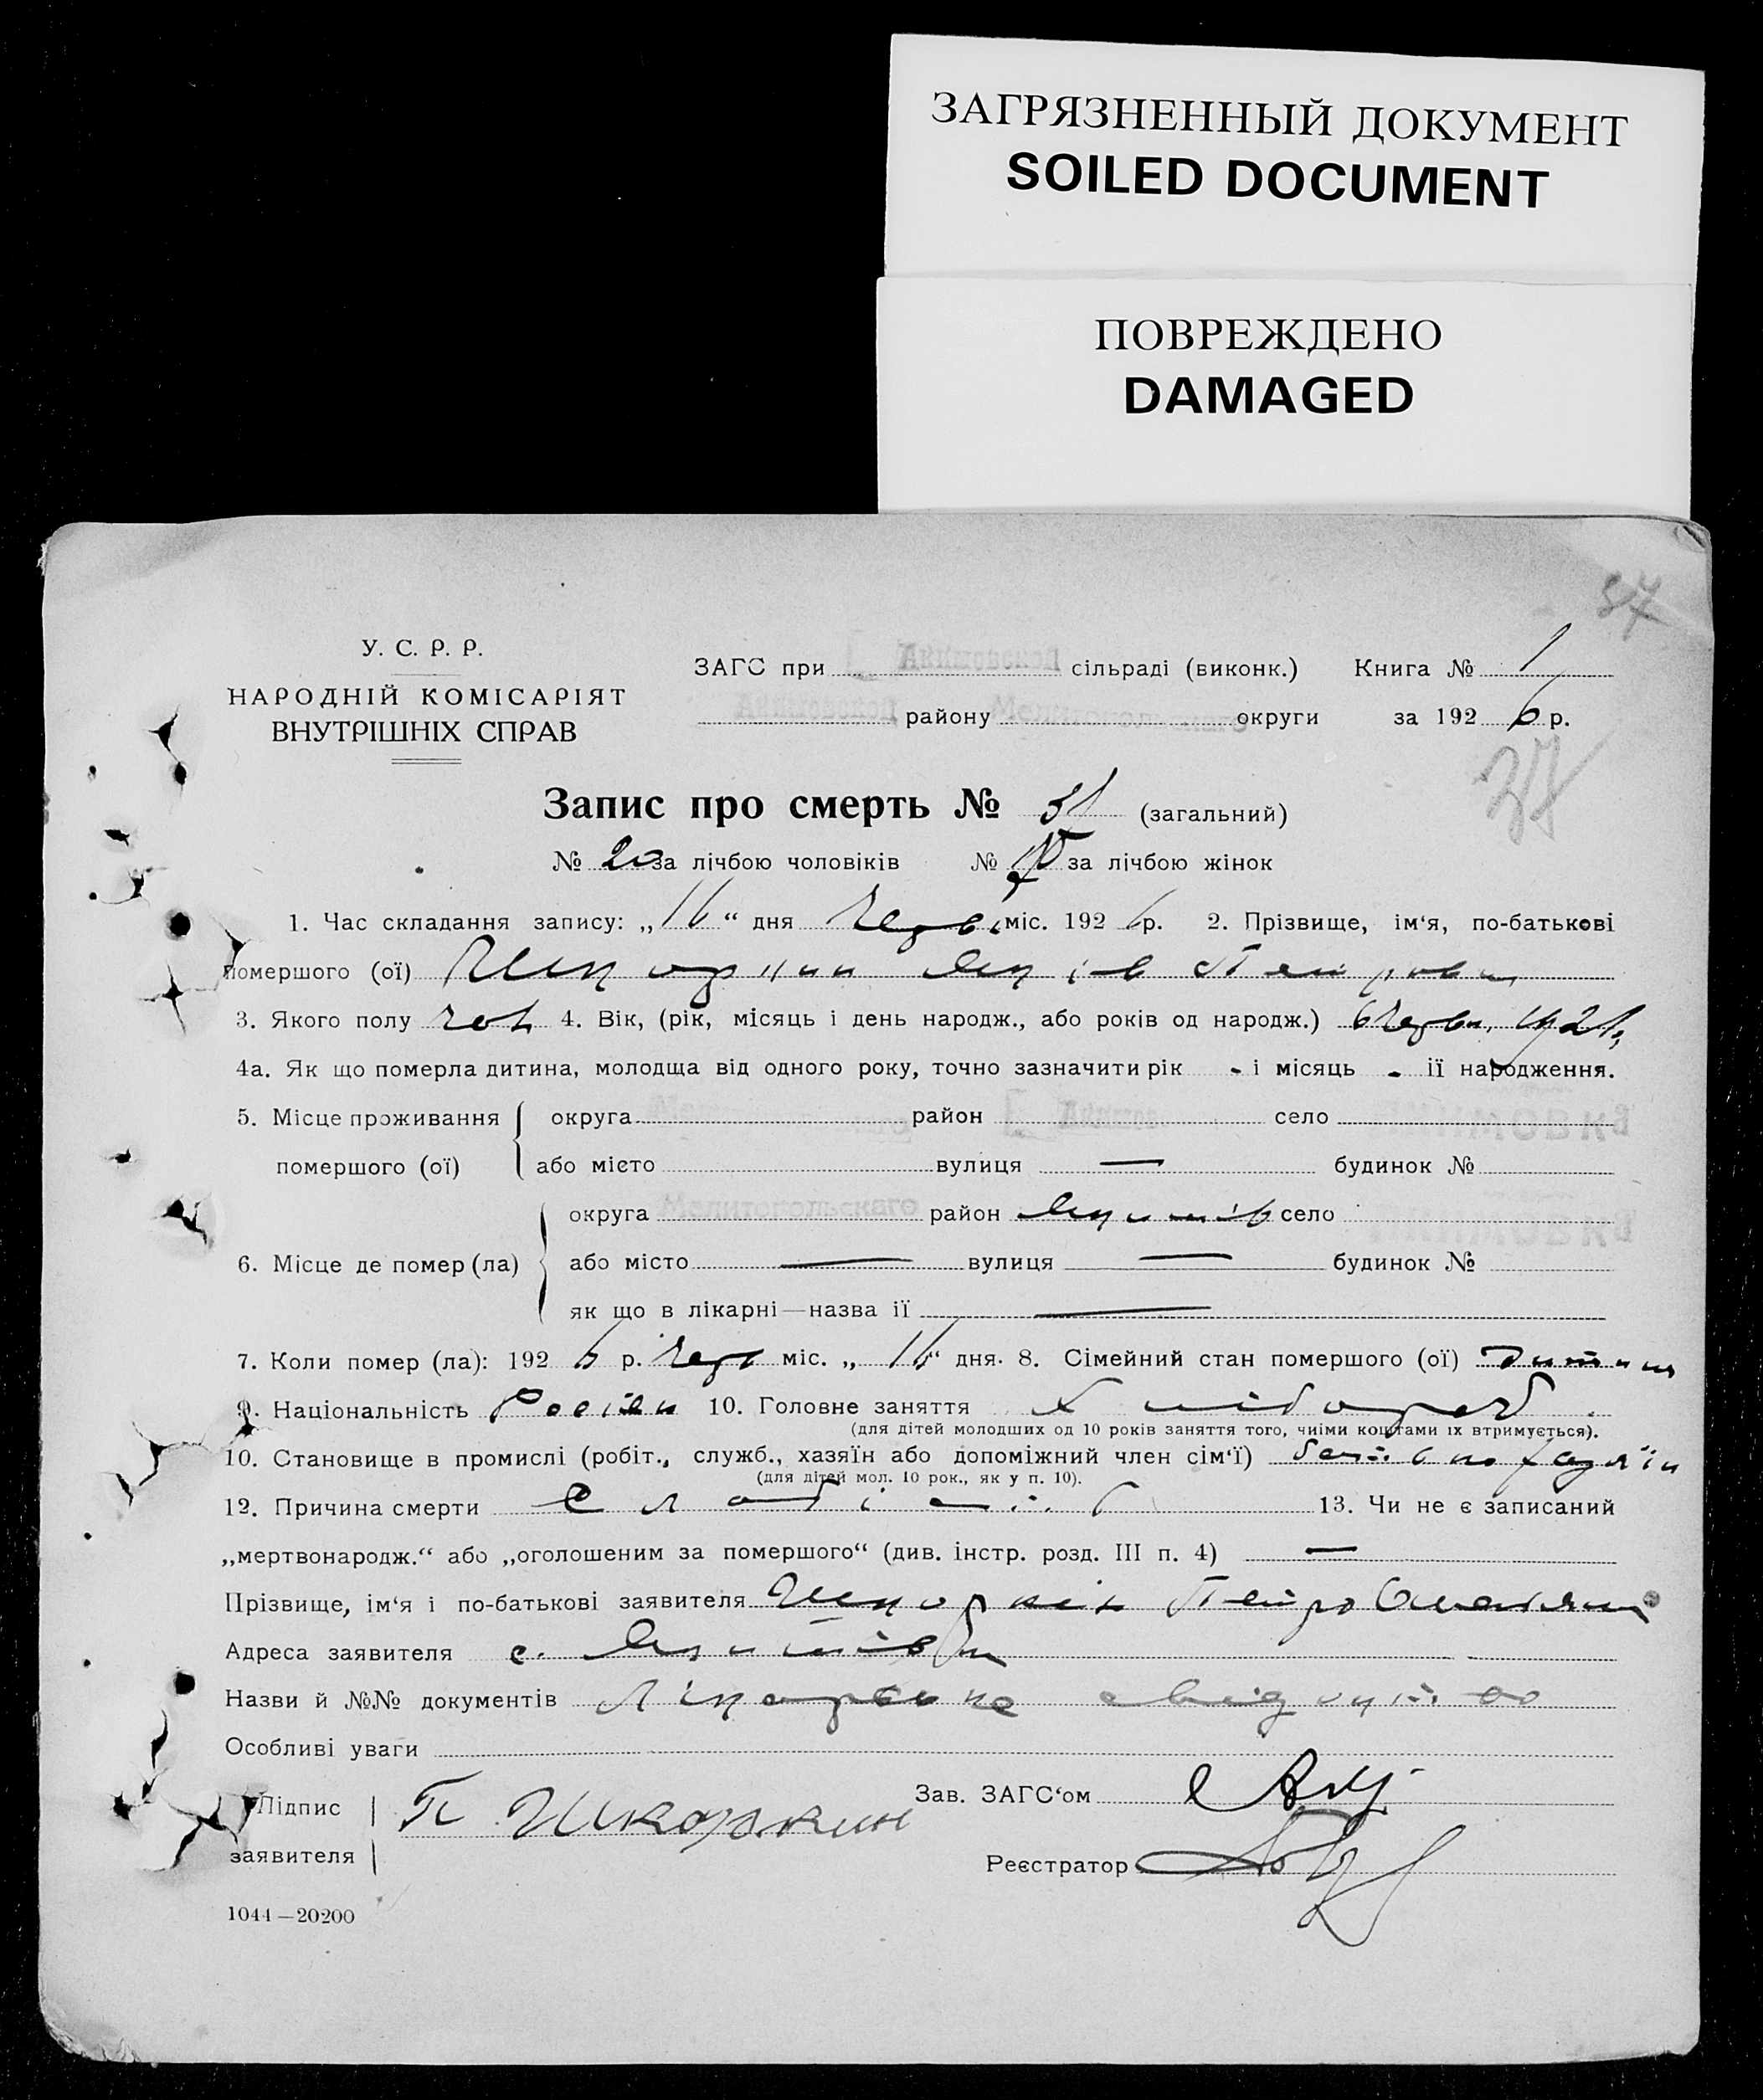 ЗАГРЯЗНЕННЫЙ ДОКУМЕНТ
SOILED DOCUMENT
ПОВРЕЖДЕНО
DAMAGED
37
У. С. Р. Р.
НАРОДНІЙ КОМІСАРІЯТ
ВНУТРІШНІХ СПРАВ
ЗАГС при Акимовской сільраді (виконк.) Книга № 1
Акимовской району округи за 1926 р.
37
Запис про смерть № 31 (загальний)
№ 20 за лічбою чоловіків № за лічбою жінок
1. Час складання запису: „16“ дня Черв. міс. 1926 р. 2. Прізвище, ім'я, по-батькові
помершого (ої)
3. Якого полу чол 4. Вік, (рік, місяць і день народж., або років од народж.) 6 червн.
4а. Як що померла дитина, молодща від одного року, точно зазначити рік - і місяць - її народження.
5. Місце проживання округа район Акимов село
помершого (ої) або місто вулиця — будинок №
округа Мелитопольскаго район село
6. Місце де помер (ла) або місто — вулиця — будинок №
як що в лікарні—назва її —
7. Коли помер (ла): 1926 р. черв міс. „16“ дня. 8. Сімейний стан помершого (ої) дитина
9. Національність Росіян 10. Головне заняття хлібороб
(для дітей молодших од 10 років заняття того, чиїми коштами їх втримується).
10. Становище в промислі (робіт., служб., хазяїн або допоміжний член сім'ї) батько хазяїн
(для дітей мол. 10 рок., як у п. 10).
12. Причина смерти слабість 13. Чи не є записаний
„мертвонародж.“ або „оголошеним за помершого“ (див. інстр. розд. III п. 4) —
Прізвище, ім'я і по-батькові заявителя Шкоркін Петро
Адреса заявителя с. Якимівка
Назви й №№ документів Лікарське свідоцтво
Особливі уваги
Зав. ЗАГС'ом
Підпис П. Шкоркин
заявителя
Реєстратор
1044—20200